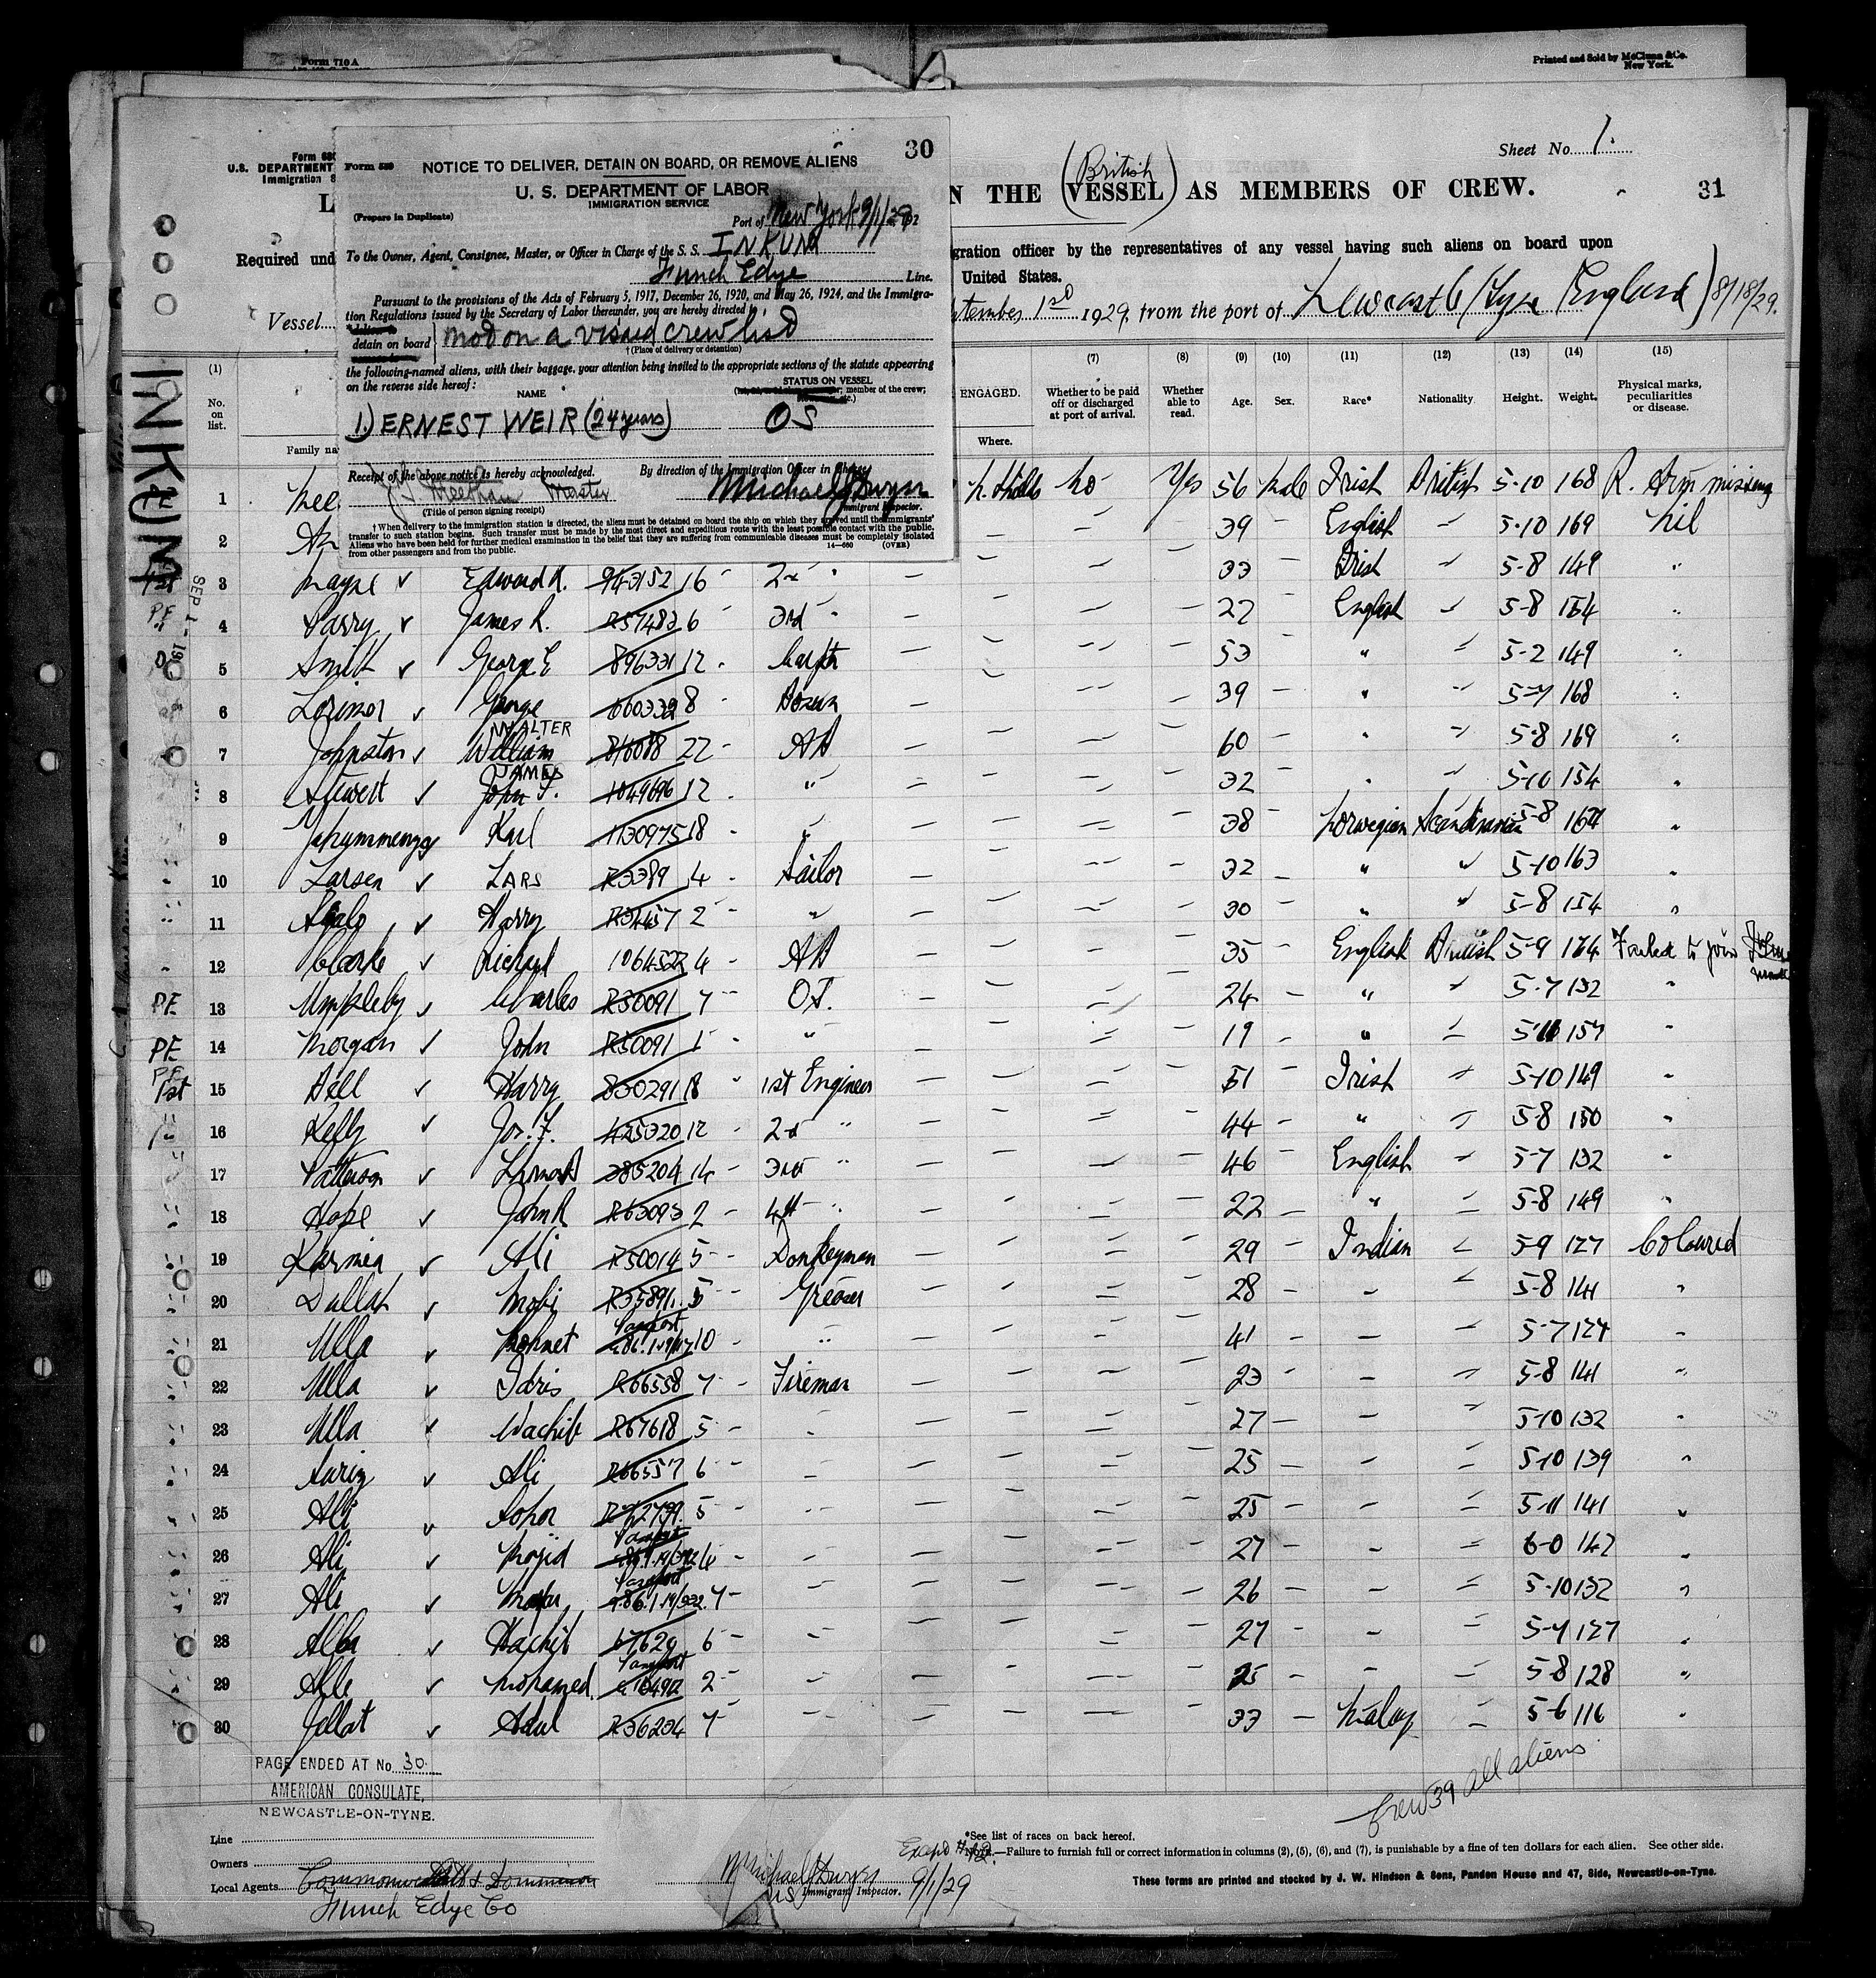 Form 710 A
Printed and Sold by McClunn & Co.
New York.
Sheet No. 1.
U. S. DEPARTMENT
Immigration S
N THE (British VESSEL) AS MEMBERS OF CREW.
31
Required und
gration officer by the representatives of any vessel having such aliens on board upon
United States.
Vessel
tember 1st 1929, from the port of Newcastle / Tyne (England) 8/18/29.
30
NOTICE TO DELIVER, DETAIN ON BOARD, OR REMOVE ALIENS
U. S. DEPARTMENT OF LABOR
IMMIGRATION SERVICE
(Prepare in Duplicate)
Port of New York 9/1/29 192
To the Owner, Agent, Consignee, Master, or Officer in Charge of the S. S. INKUM
Funch Edye Line.
Pursuant to the provisions of the Acts of February 5, 1917, December 26, 1920, and May 26, 1924, and the Immigra-
tion Regulations issued by the Secretary of Labor thereunder, you are hereby directed to
detain on board not on a visaed crew list
† (Place of delivery or detention)
the following-named aliens, with their baggage, your attention being invited to the appropriate sections of the statute appearing
on the reverse side hereof:
STATUS ON VESSEL
member of the crew;
NAME
1.) ERNEST WEIR (24 years) OS
Receipt of the above notice is hereby acknowledged. By direction of the Immigration Officer in Charge
Meethan Master Michael J Dwyer
(Title of person signing receipt) Immigrant Inspector.
† When delivery to the immigration station is directed, the aliens must be detained on board the ship on which they arrived until the immigrants'
transfer to such station begins. Such transfer must be made by the most direct and expeditious route with the least possible contact with the public.
Aliens who have been held for further medical examination in the belief that they are suffering from communicable diseases must be completely isolated
from other passengers and from the public. 14—660 (OVER)
INKUM
SEP 1 - 19
(1) (7) (8) (9) (10) (11) (12) (13) (14) (15)
No. on list. Family na ENGAGED. Where. Whether to be paid off or discharged at port of arrival. Whether able to read. Age. Sex. Race* Nationality Height. Weight. Physical marks, peculiarities or disease.
1 Mee N. Shields No Yes 56 Male Irish British 5-10 168 R. Arm missing
2 39 English 5-10 169 Nil
3 Mayne Edward R. 943152 16 2nd 33 Irish 5-8 149
4 Parry James R. R57483 6 3rd 22 English 5-8 154
5 Smith George E 896331 12 Carptr 53 5-2 149
6 Lorimer George 660332 8 Bosun 39 5-7 168
7 Johnston WALTER William 816088 22 AB 60 5-8 169
8 Stewart JAMES John F. 1049696 12 32 5-10 154
9 Karl 1130975 18 38 Norwegian Scandinavian 5-8 164
10 Larsen LARS R3389 4 Sailor 32 5-10 163
11 Harry R34457 2 30 5-8 154
12 Clarke Richard 1064522 4 AB 35 English British 5-9 164 Failed to join
PE 13 Umpleby Charles R50091 7 OS. 24 5-7 132
PE 14 Morgan John R50091 1 19 157
PE 1st 15 Bell Harry 830291 18 1st Engineer 51 Irish 5-10 149
16 Kelly Jos. F. 425320 12 2nd 44 5-8 150
17 Patterson 385204 14 3rd 46 English 5-7 132
18 Hope John R R63093 2 4th 22 5-8 149
19 Karmia Ali R50014 5 Donkeyman 29 Indian 5-9 127 Coloured
20 Dullah Mobi R35891 5 Greaser 28 5-8 141
21 Ulla 10 41 5-7 124
22 Ulla Idris R66558 7 Fireman 23 5-8 141
23 Ulla Wachib R67618 5 27 5-10 132
24 Ali R66557 6 25 5-10 139
25 Ali 5 25 5-11 141
26 Ali Mojid 27 6-0 142
27 Ali 7 26 5-10 132
28 67629 6 27 5-4 127
29 Mohamed 2 25 5-8 128
30 Jellat R36234 7 33 Malay 5-6 116
PAGE ENDED AT No. 30.
AMERICAN CONSULATE,
NEWCASTLE-ON-TYNE.
Crew 39 all aliens
Line
Owners
Local Agents Commonwealth & Dominion
Funch Edye Co
Except # 12.
Michael J Dwyer
US Immigrant Inspector. 9/1/29
*See list of races on back hereof.
Note.—Failure to furnish full or correct information in columns (2), (5), (6), and (7), is punishable by a fine of ten dollars for each alien. See other side.
These forms are printed and stocked by J. W. Hindson & Sons, Pandon House and 47, Side, Newcastle-on-Tyne.